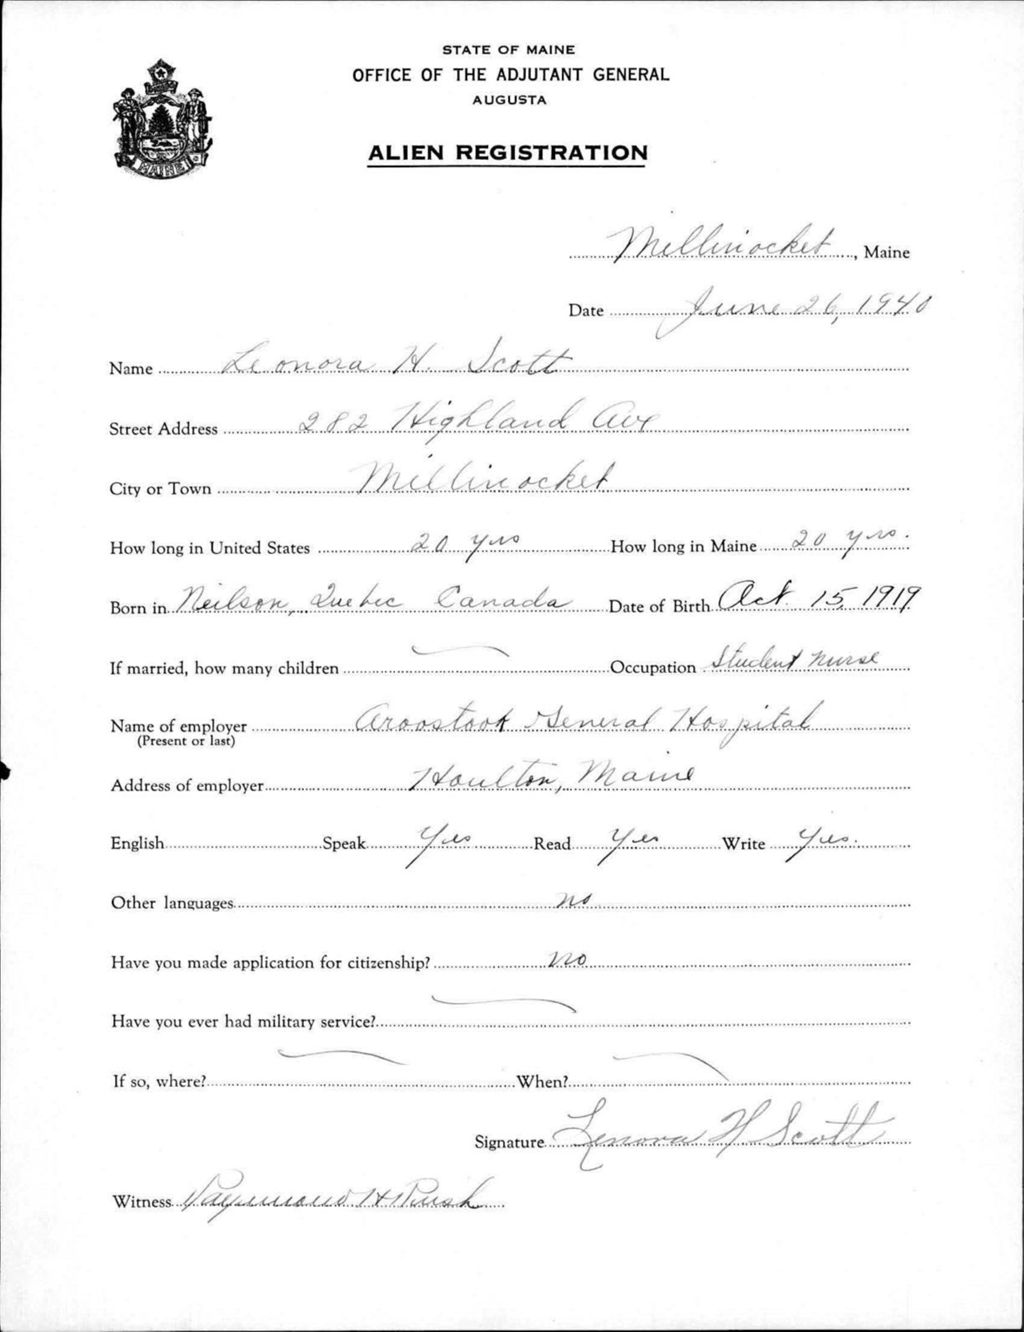 STATE OF MAINE
OFFICE OF THE ADJUTANT GENERAL
AUGUSTA
ALIEN REGISTRATION
MAINE
Millinocket, Maine
Date June 26, 1940
Name Leonora H. Scott
Street Address 282 Highland Ave
City or Town Millinocket
How long in United States 20 yrs How long in Maine 20 yrs.
Born in Neilson, Quebec Canada Date of Birth Oct. 15, 1919
If married, how many children Occupation Student Nurse
Name of employer Aroostook General Hospital
(Present or last)
Address of employer Houlton, Maine
English Speak Yes Read Yes Write Yes.
Other languages no
Have you made application for citizenship? no
Have you ever had military service?
If so, where? When?
Signature Lenora H Scott
Witness Raymond H Rush